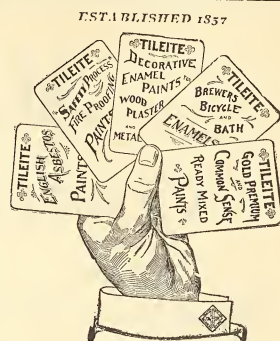 ESTABLISHED 1857
TILEITE
ENGLISH
ASBESTOS
PAINTS
TILEITE
PROCESS
FIRE PROOFING
PAINTS
TILEITE
DECORATIVE
ENAMEL
PAINTS FOR
WOOD
PLASTER
AND
METAL
TILEITE
BREWERS
BICYCLE
AND
BATH
ENAMELS
TILEITE
GOLD PREMIUM
AND
COMMON SENSE
READY MIXED
PAINTS